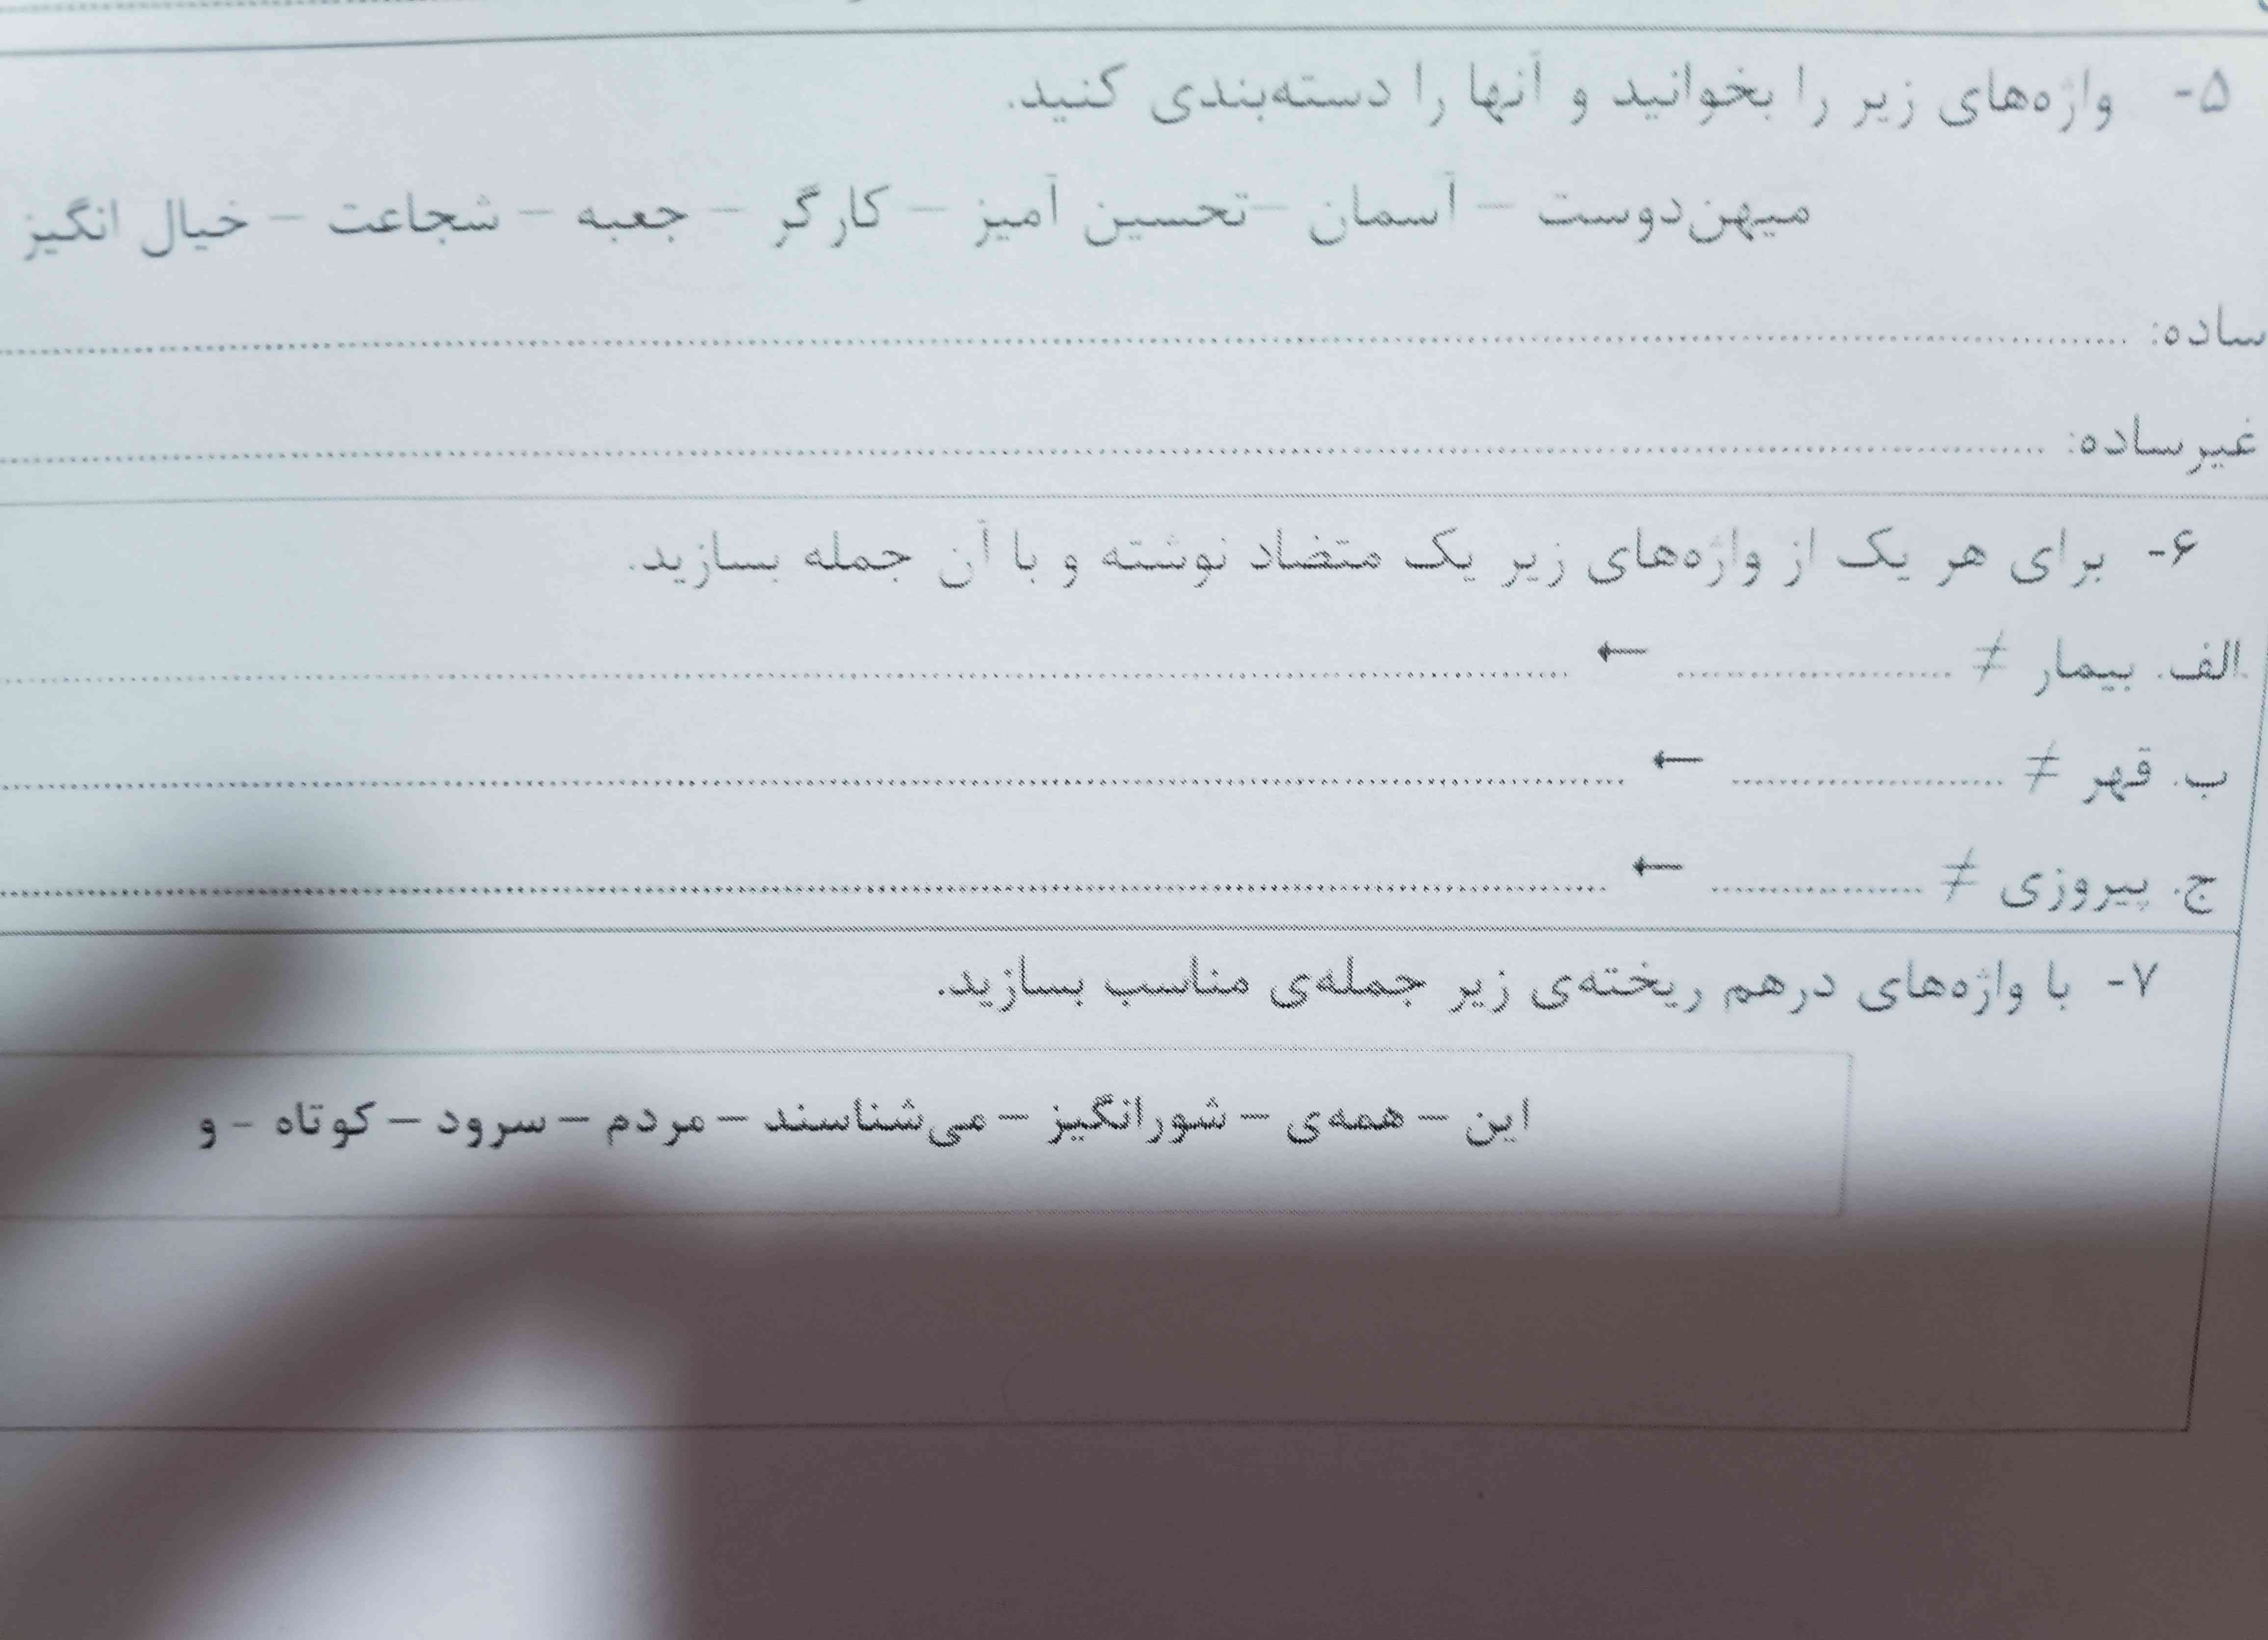 ۵- واژه‌های زیر را بخوانید و آنها را دسته‌بندی کنید.
میهن‌دوست – آسمان –تحسین آمیز – کارگر – جعبه – شجاعت – خیال انگیز
ساده: ........................................
غیرساده: ........................................
۶- برای هر یک از واژه‌های زیر یک متضاد نوشته و با آن جمله بسازید.
الف. بیمار ≠ .................... ← ........................................
ب. قهر ≠ .................... ← ........................................
ج. پیروزی ≠ .................... ← ........................................
۷- با واژه‌های درهم ریخته‌ی زیر جمله‌ی مناسب بسازید.
این – همه‌ی – شورانگیز – می‌شناسند – مردم – سرود – کوتاه - و